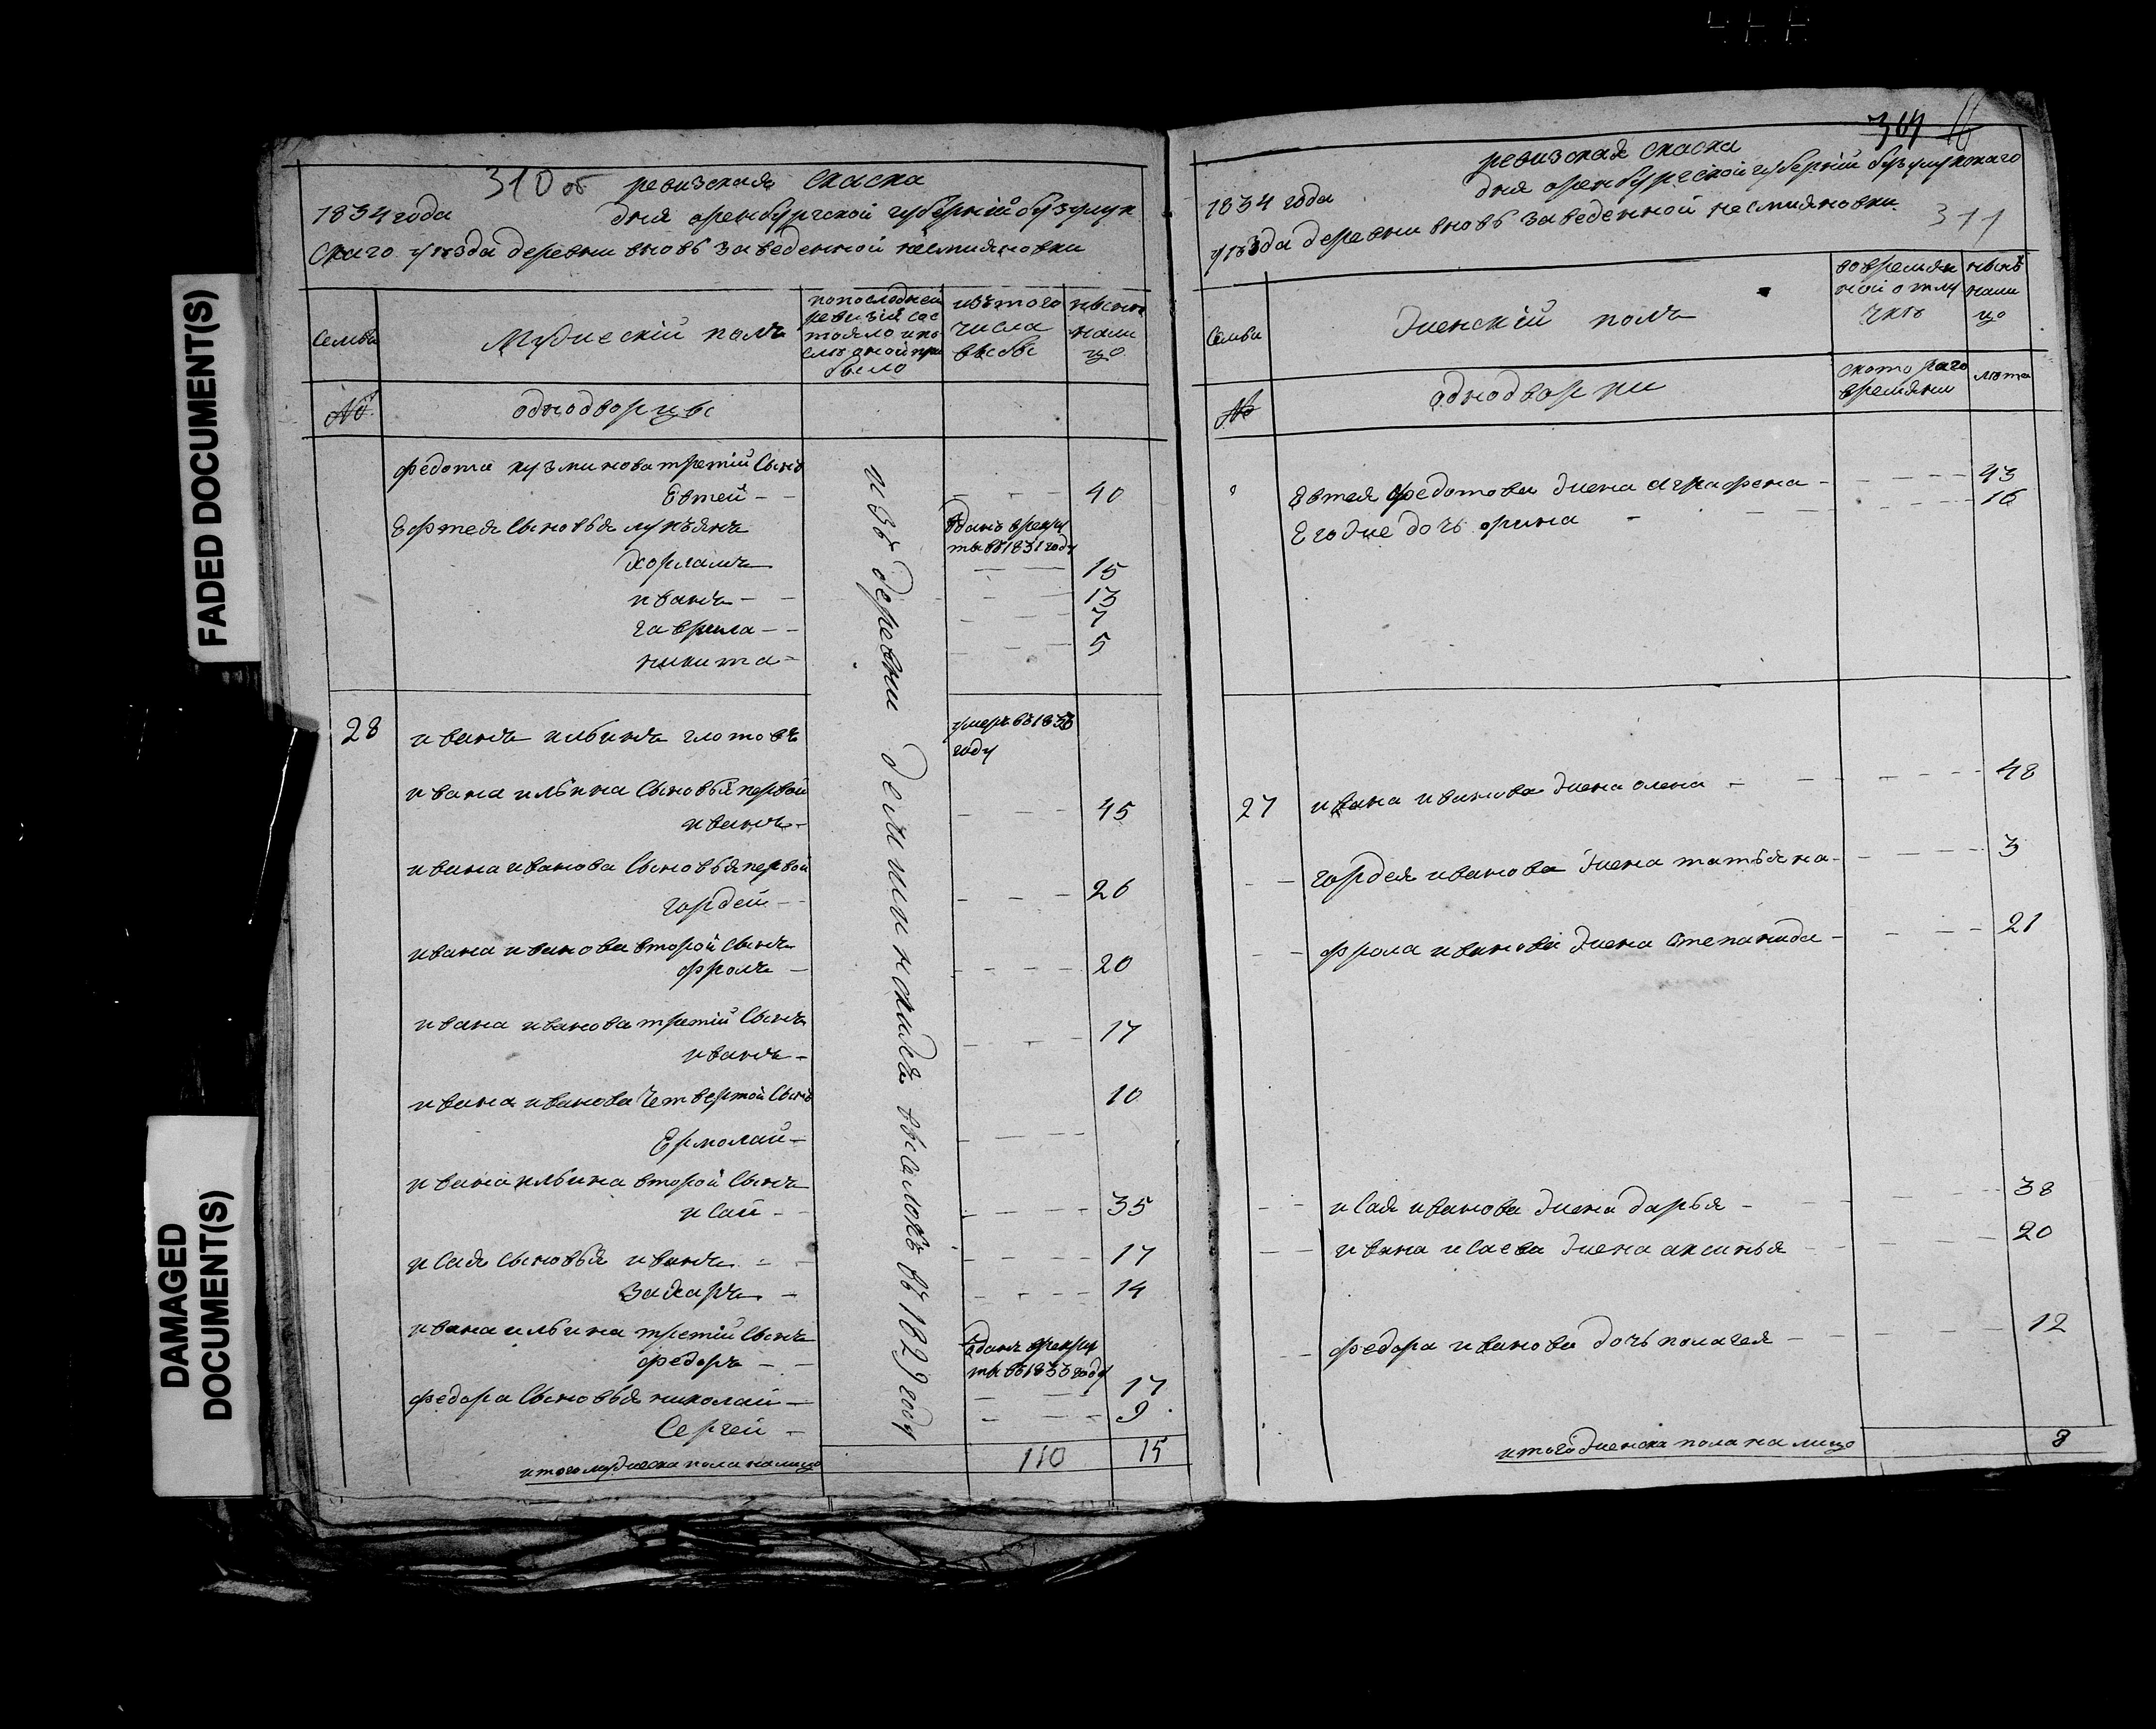 FADED DOCUMENT(S)
DAMAGED
DOCUMENT(S)
310 об ревизская скаска
1834 года дня оренбургской губернiй бузулук
скаго уѣзда деревни вновь заведенной несмияновки
Семьи
Мужескiй полъ
попоследней
ревизiй сос
тояло ипо
слѣ оной при
было
изъ того
числа
выбы
ныне
нали
цо
№
однодворцы
федота кузминова третiй Сынъ
Евтей - - 40
Ефтея Сыновья лукъянъ отданъ врекру
ты въ 1831 году
харламъ 15
иванъ - 13
гаврила - - 7
никита - 5
28 иванъ ильинъ глотовъ умеръ въ 1833
году
ивана ильина Сыновья первой
иванъ - 45
ивана иванова Сыновья первой
гордей - - 26
ивана иванова второй сынъ
фролъ - 20
ивана иванова третiй Сынъ 17
иванъ -
ивана иванова Четвертой Сынъ 10
Ермолай -
ивана ильина второй Сынъ
исай - - 35
исая сыновья иванъ - - 17
Захаръ - 14
ивана ильина третiй Сынъ
федоръ - - отданъ врекру
ты въ 1833 году
федора Сыновья николай - 17
Сергей - 9
итого мужеска пола налицо 110 15
изъ деревни
въ 1829 году
309
ревизская скаска
1834 года дня оренбургской губернiй бузулукскаго
уѣзда деревни вновь заведенной несмияновки
311
Семьи
Женскiй полъ
вовремян
ной отлу
чкѣ
нынѣ
нали
цо
№
однодворки
скотораго
времяни
лета
Евтея федотова жена аграфена - 43
Егоже дочь орина - 16
27 ивана иванова жена олена - 48
гордея иванова жена татьяна - 3
фрола иванова жена степанида - 21
исая иванова жена дарья - 38
ивана исаева жена аксинья 20
федора иванова дочь полагея 12
итого женска пола на лицо 8